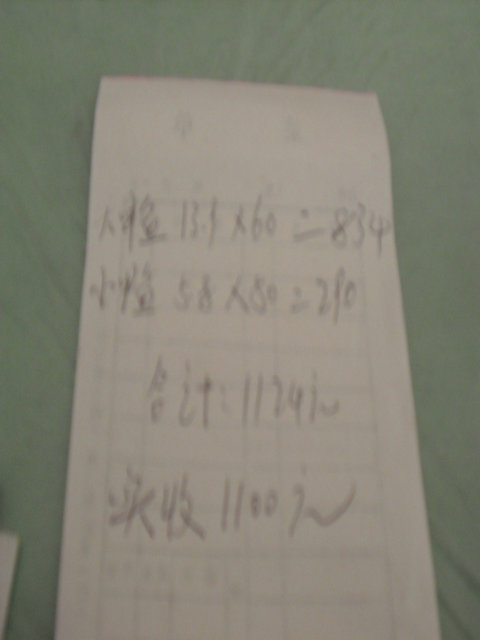 大 13.9×60=834
小 5.8×50=290
合计:1124元
实收1100元